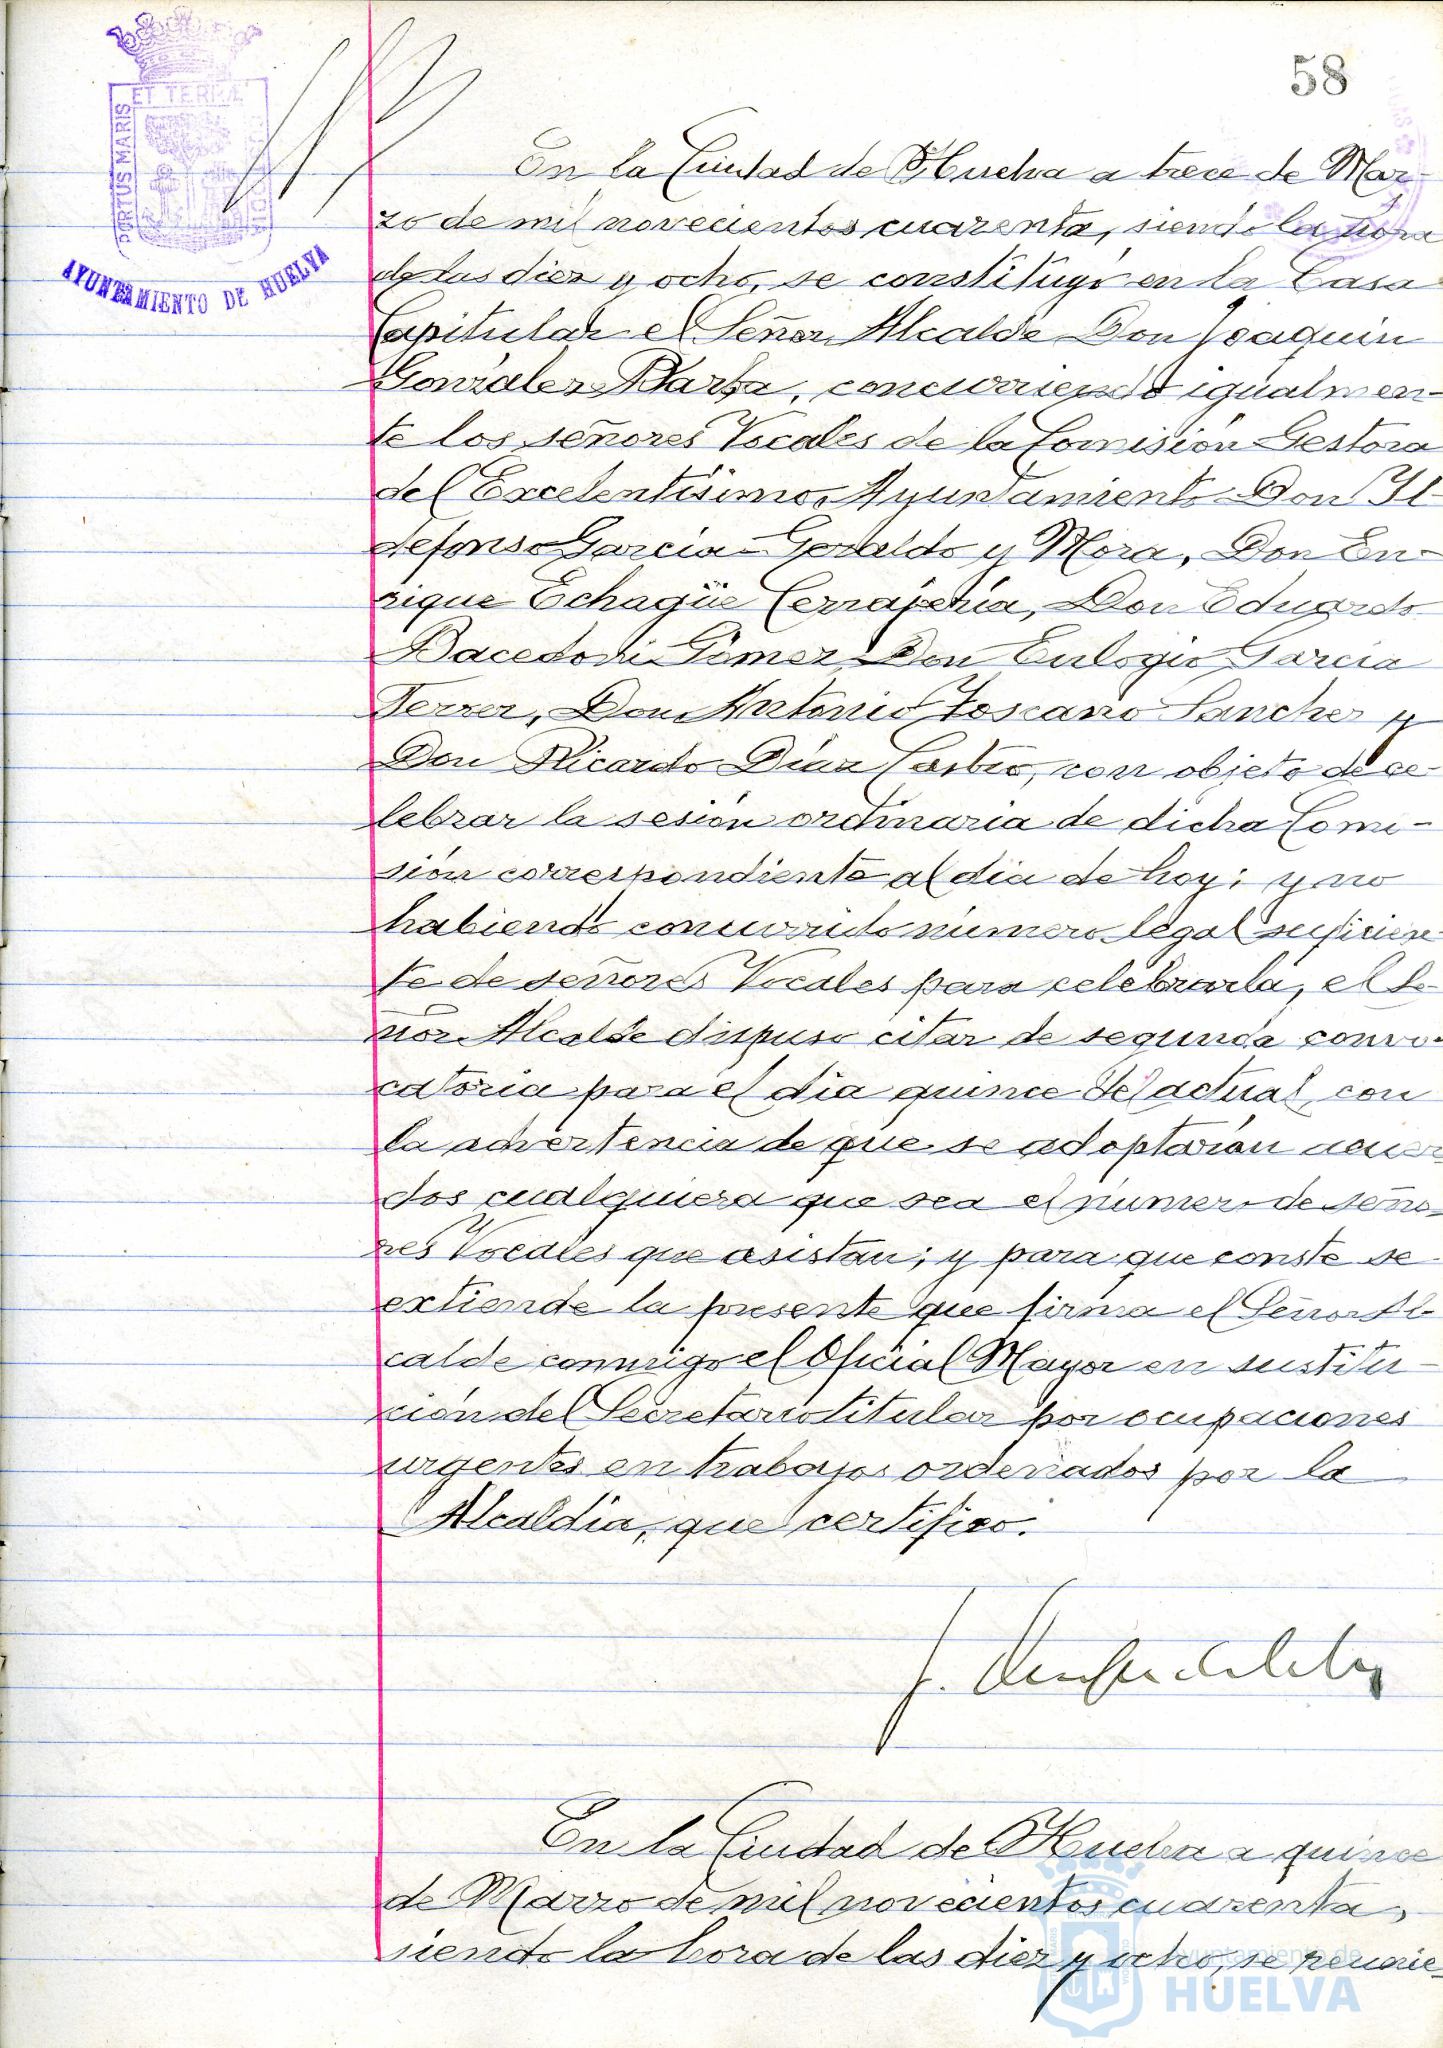 58
ET TERRÆ
PORTUS MARIS
AYUNTAMIENTO DE HUELVA
En la Ciudad de Huelva a trece de Mar-
zo de mil novecientos cuarenta, siendo la hora
de las diez y ocho, se constituyó en la Casa
Capitular el Señor Alcalde Don Joaquin
González Barba, concurriendo igualmen-
te los señores Vocales de la Comisión Gestora
del Excelentísimo Ayuntamiento Don Il-
defonso Garcia-Geraldo y Mora, Don En-
rique Echagüe Cerrajería, Don Eduardo
Bacedoni Gómez, Don Eulogio Garcia
Ferrer, Don Antonio Toscano Sanchez y
Don Ricardo Díaz Castro, con objeto de ce-
lebrar la sesión ordinaria de dicha Comi-
sión correspondiente al dia de hoy; y no
habiendo concurrido número legal suficien-
te de señores Vocales para celebrarla, el Se-
ñor Alcalde dispuso citar de segunda convo-
catoria para el dia quince del actual, con
la advertencia de que se adoptarian acuer-
dos cualquiera que sea el numero de seño-
res Vocales que asistan; y para que conste se
extiende la presente que firma el Señor Al-
calde conmigo el Oficial Mayor en sustitu-
ción del Secretario titular por ocupaciones
urgentes en trabajos ordenados por la
Alcaldia, que certifico.
En la Ciudad de Huelva a quince
de Marzo de mil novecientos cuarenta,
siendo la hora de las diez y ocho, se reunie-
Ayuntamiento de
HUELVA